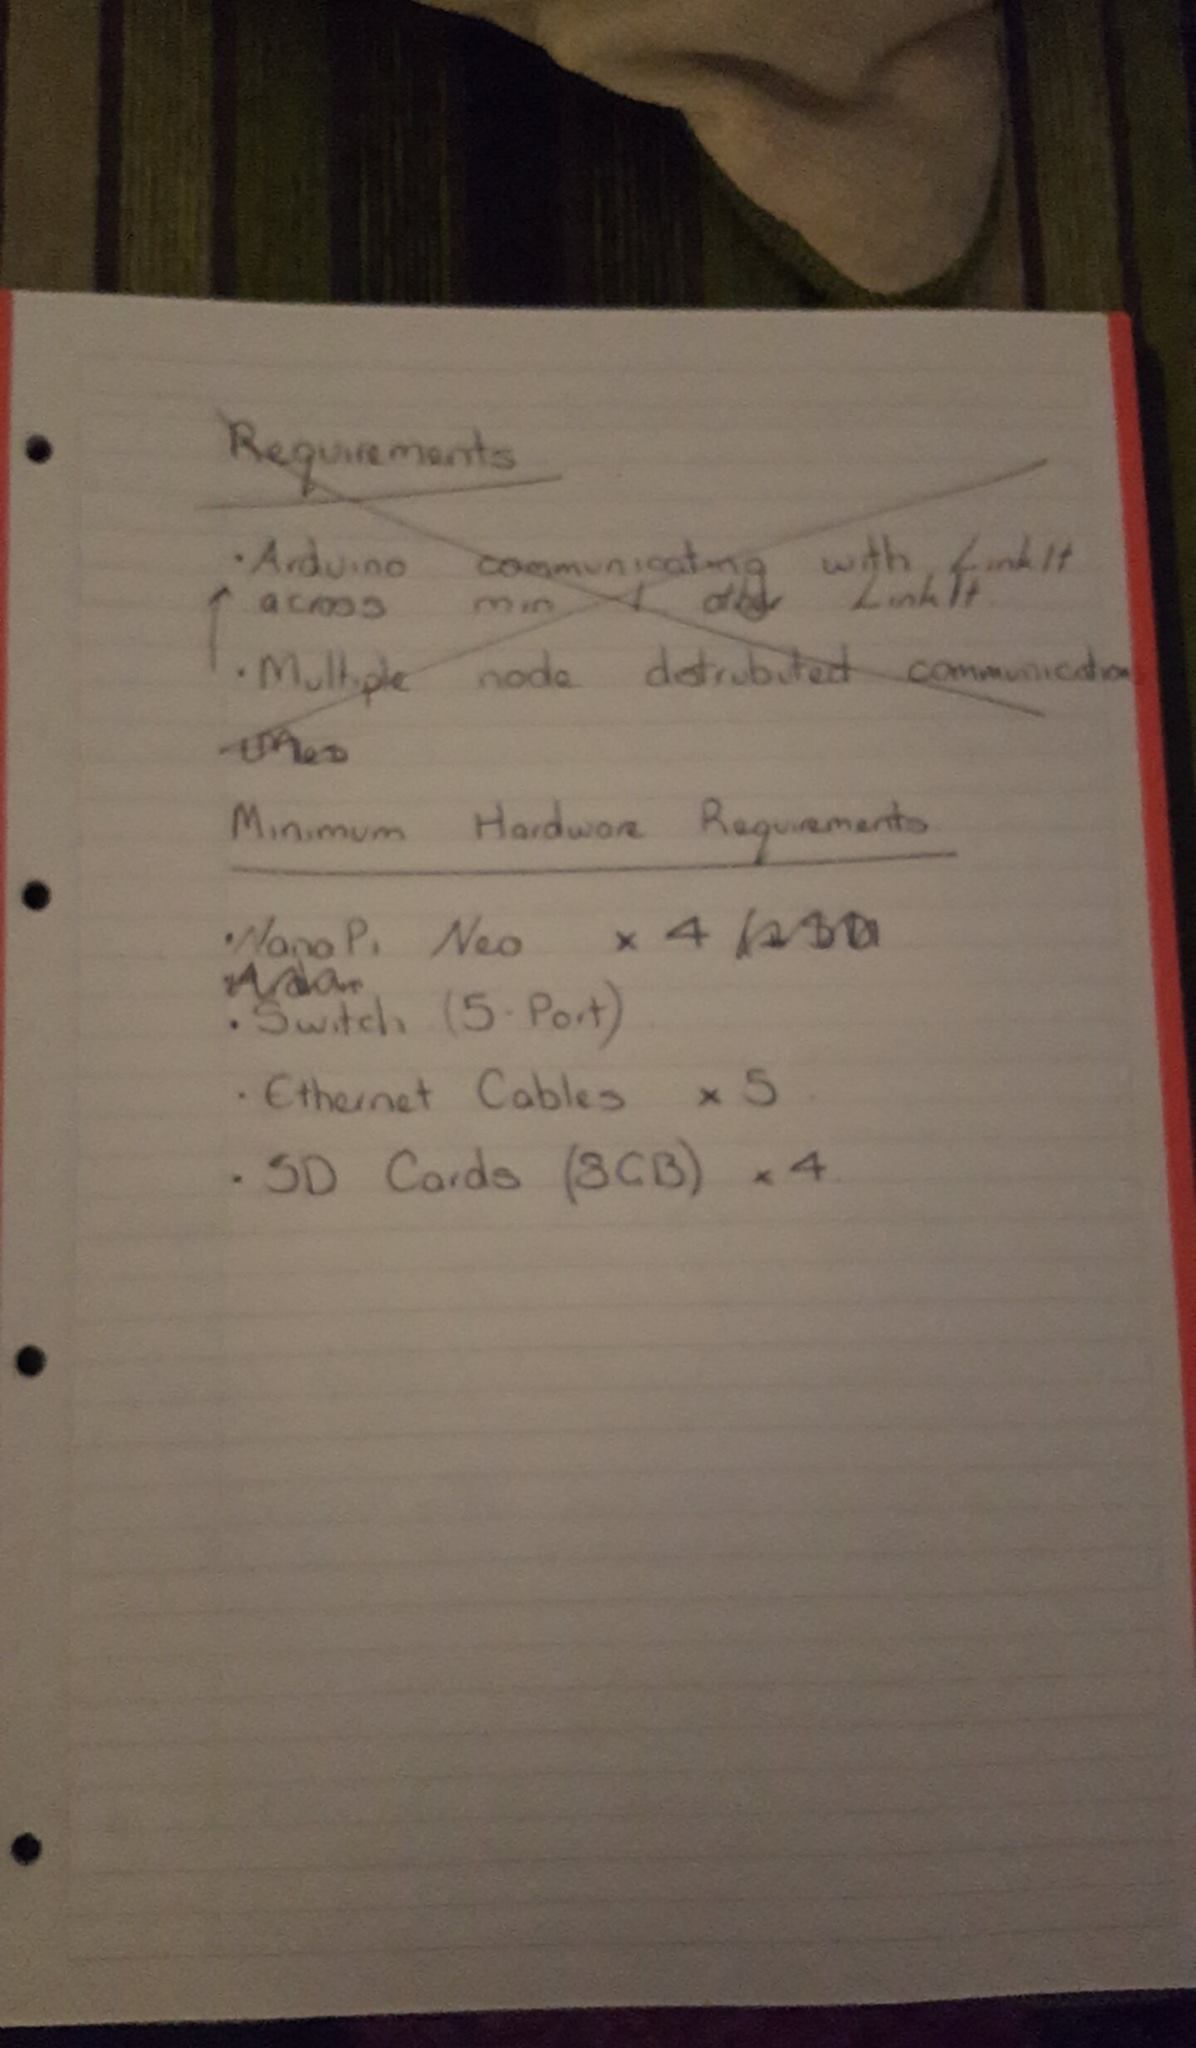 Requirements
· Arduino communicating with LinkIt
across min 1 other LinkIt
· Multiple node distributed communication
Minimum Hardware Requirements
· NanoPi Neo x 4
· Switch (5-Port)
· Ethernet Cables x 5
· SD Cards (8GB) x 4